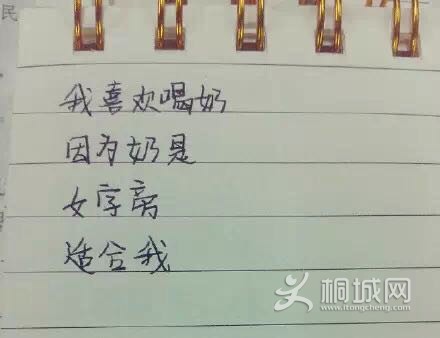 民
我喜欢喝奶
因为奶是
女字旁
适合我
桐城网
itongcheng.com